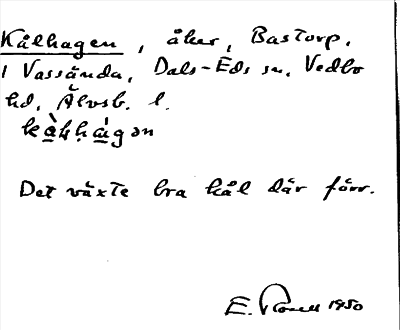 Kålhagen, åker, Bastorp.
1 Vassända, Dals-Eds sn. Vedbo
hd, Älvsb. l.
Det växte bra kål där förr.
E. 1950